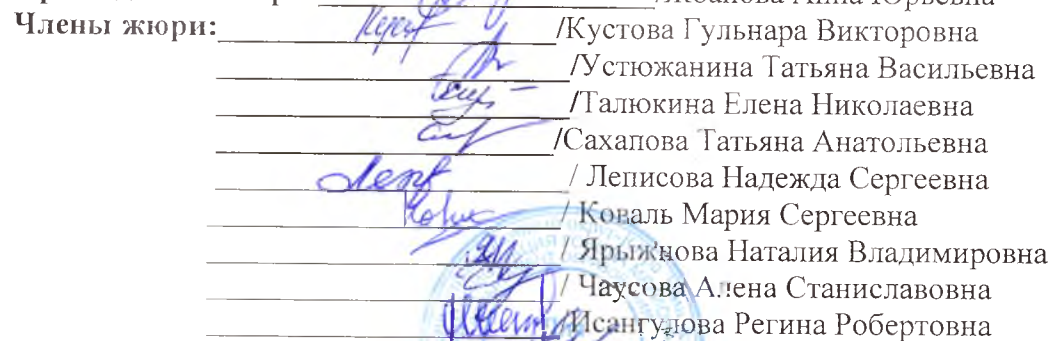 Анна Юрьевна
Члены жюри: /Кустова Гульнара Викторовна
/Устюжанина Татьяна Васильевна
/Талюкина Елена Николаевна
/Сахапова Татьяна Анатольевна
/ Леписова Надежда Сергеевна
/ Коваль Мария Сергеевна
/ Ярыжнова Наталия Владимировна
/ Чаусова Алена Станиславовна
/Исангулова Регина Робертовна